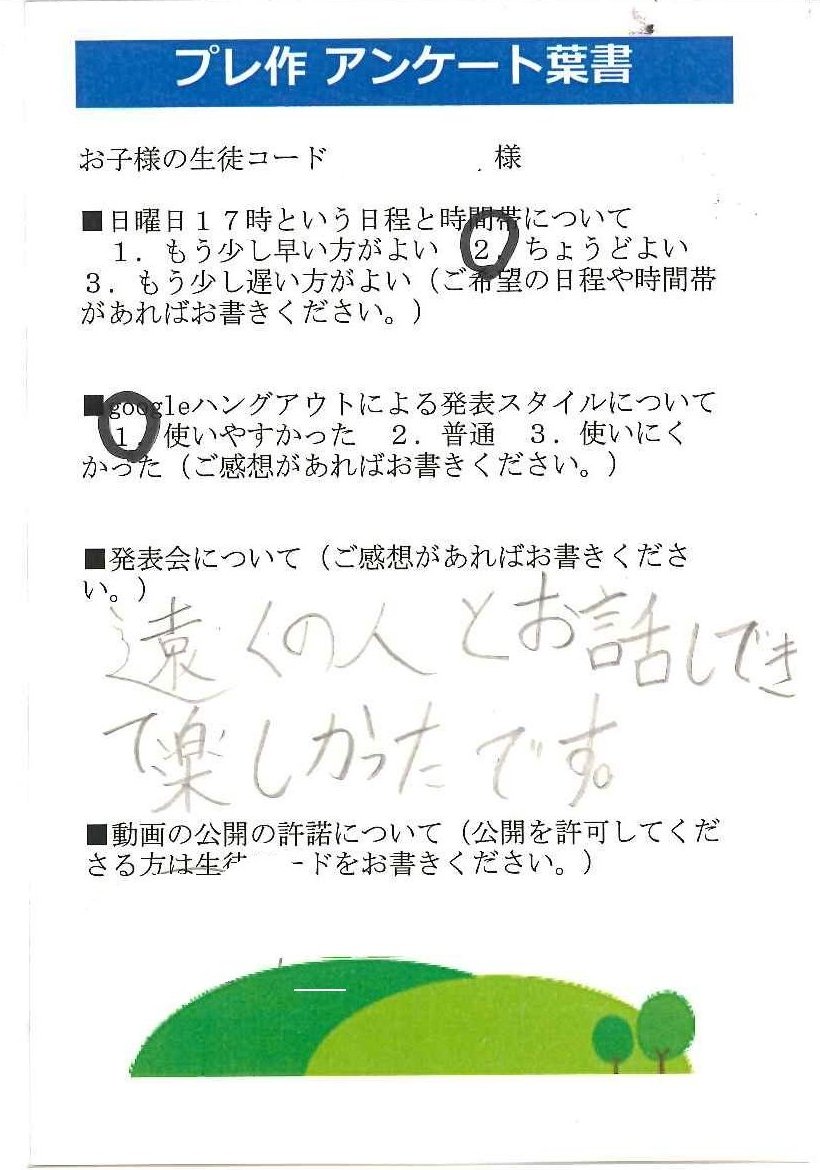 プレ作 アンケート葉書
お子様の生徒コード 様
■日曜日１７時という日程と時間帯について
１．もう少し早い方がよい ２．ちょうどよい
３．もう少し遅い方がよい（ご希望の日程や時間帯
があればお書きください。）
■googleハングアウトによる発表スタイルについて
１．使いやすかった ２．普通 ３．使いにく
かった（ご感想があればお書きください。）
■発表会について（ご感想があればお書きくださ
い。）
遠くの人とお話しでき
て楽しかったです。
■動画の公開の許諾について（公開を許可してくだ
さる方は生徒 ードをお書きください。）